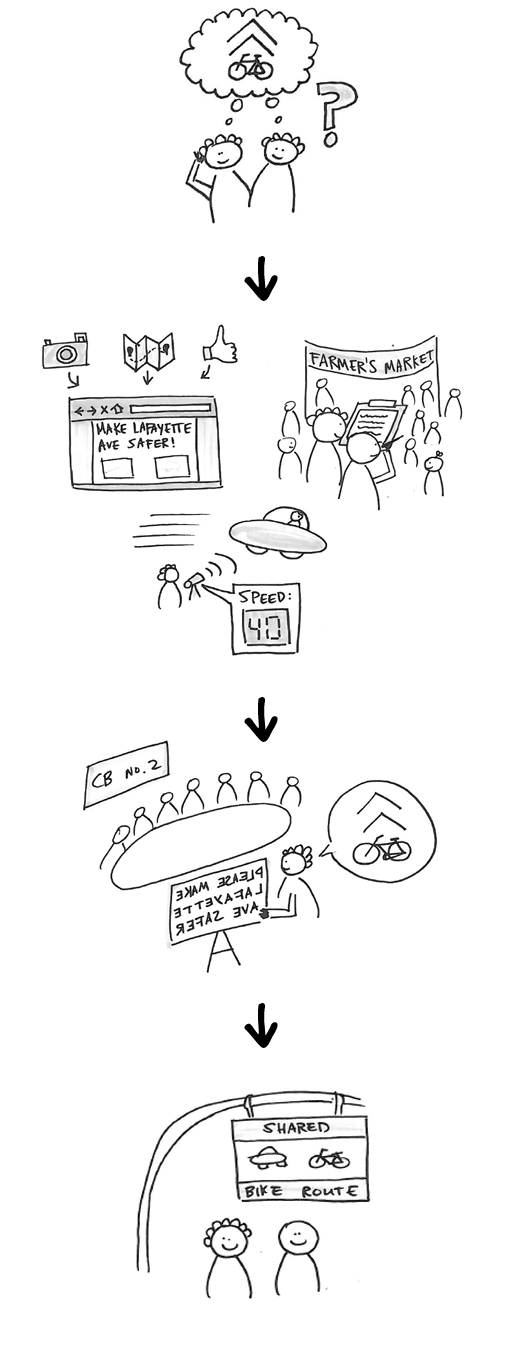 ?
MAKE LAFAYETTE
AVE SAFER!
FARMER'S MARKET
SPEED:
40
CB NO.2
PLEASE MAKE
LAFAYETTE
AVE SAFER
SHARED
BIKE ROUTE